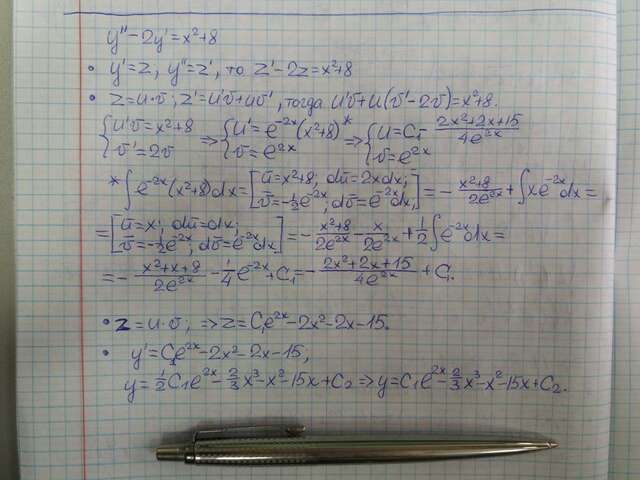 y'' - 2y' = x²+8
• y' = z, y'' = z', то z' - 2z = x²+8
• z = u·v; z' = u'v + uv', тогда u'v + u(v' - 2v) = x²+8.
{u'v = x²+8; v' = 2v ⇒ {u' = e^(-2x)(x²+8)*; v = e^(2x) ⇒ {u = C₁ - (2x²+2x+15)/(4e^(2x)); v = e^(2x)
* ∫e^(-2x)(x²+8)dx = [ū = x²+8; dū = 2xdx; v̄ = -½e^(-2x); dv̄ = e^(-2x)dx] = - (x²+8)/(2e^(2x)) + ∫xe^(-2x)dx =
= [ū = x; dū = dx; v̄ = -½e^(-2x); dv̄ = e^(-2x)dx] = - (x²+8)/(2e^(2x)) - x/(2e^(2x)) + ½∫e^(-2x)dx =
= - (x²+x+8)/(2e^(2x)) - ¼e^(-2x) + C₁ = - (2x²+2x+15)/(4e^(2x)) + C₁.
• z = u·v; ⇒ z = C₁e^(2x) - 2x² - 2x - 15.
• y' = C₁e^(2x) - 2x² - 2x - 15,
y = ½C₁e^(2x) - ⅔x³ - x² - 15x + C₂ ⇒ y = C₁e^(2x) - ⅔x³ - x² - 15x + C₂.